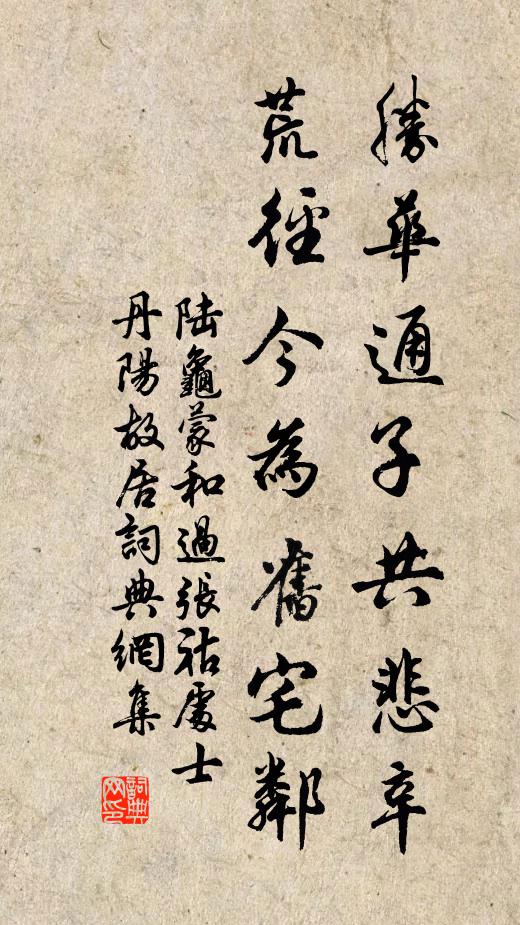 勝華通子共悲辛
荒徑今為舊宅鄰
陸龜蒙和過張祜處士
丹陽故居詞典網集
詞典
网印